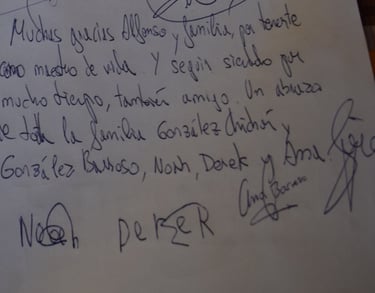 Muchas gracias Alfonso y familia, por tenerte
como maestro de vida. Y seguir siendo por
mucho tiempo, también amigo. Un abrazo
de toda la familia González Chichón y
González Barroso, Noah, Derek y Ana.
Noah DEREK
Ana Barroso